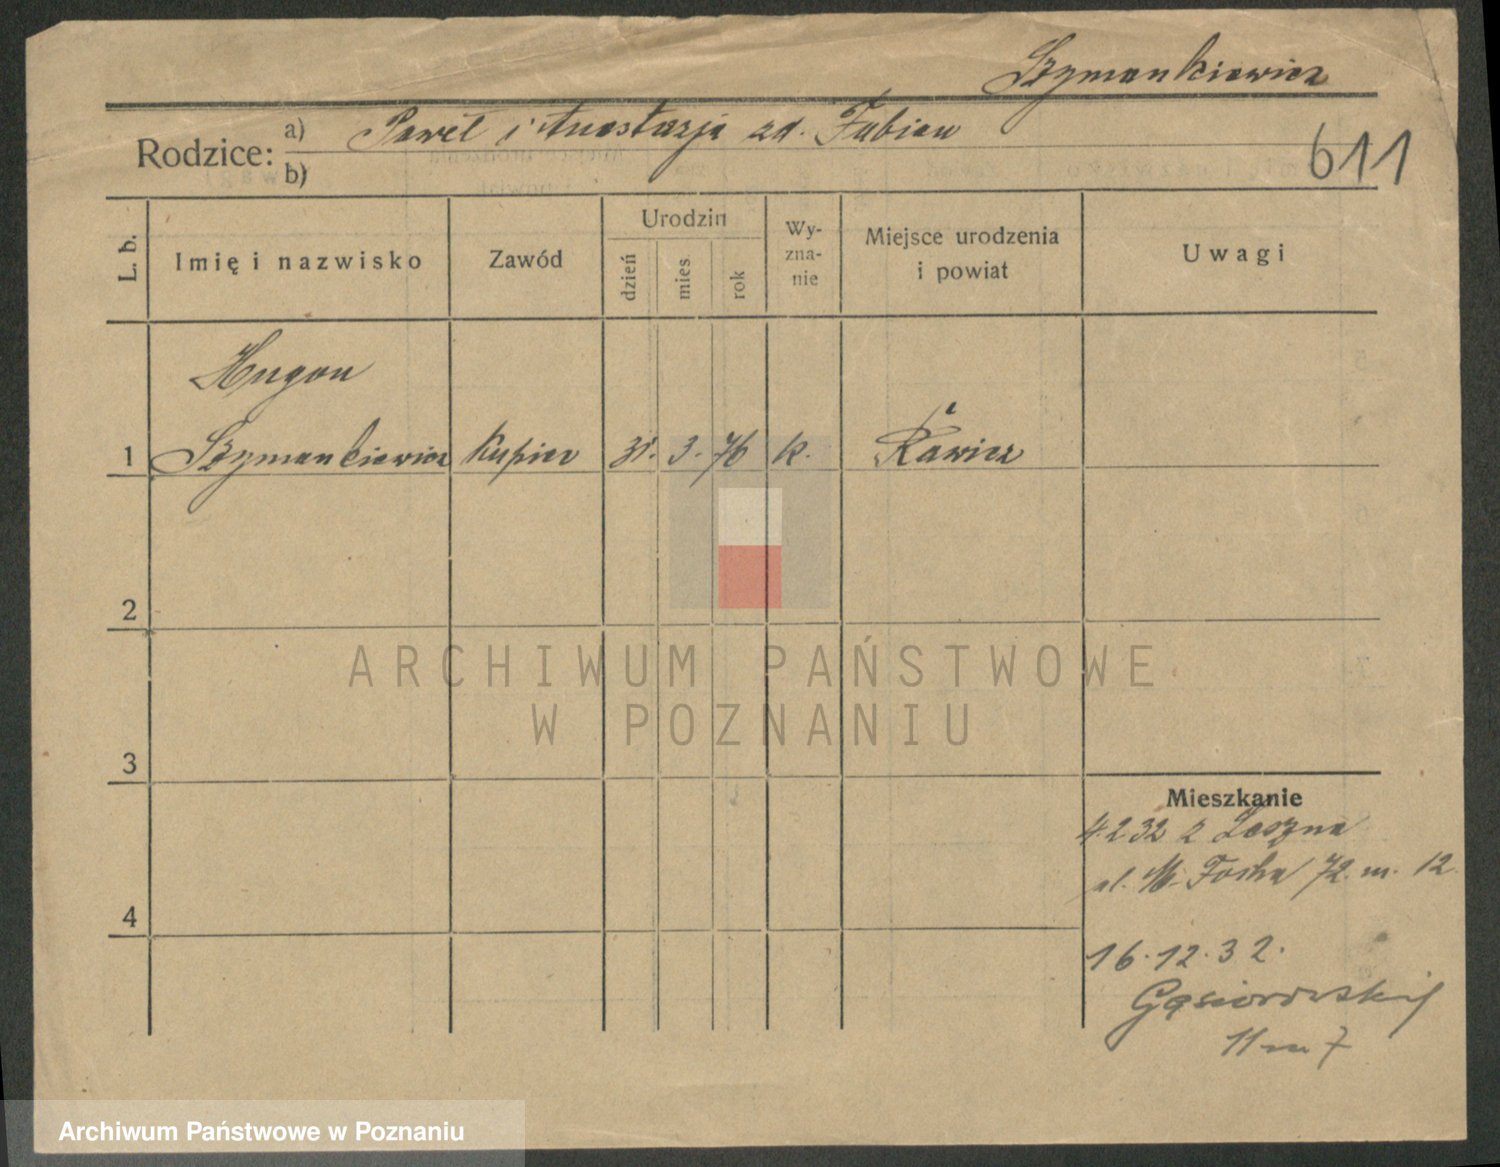 Szymankiewicz
Rodzice: a) Paweł i Anastazja zd. Fabian
b)
611
L. b.
Imię i nazwisko
Zawód
Urodzin
dzień
mies
rok
Wy-
zna-
nie
Miejsce urodzenia
i powiat
Uwagi
Hugon
1 Szymankiewicz kupiec 31. 3. 76 k. Rawicz
2
3
4
Mieszkanie
4.2.32 z Leszna
ul. M. Focha 72. m. 12
16.12.32.
Gąsiorowskich
11 m 7
ARCHIWUM PAŃSTWOWE
W POZNANIU
Archiwum Państwowe w Poznaniu